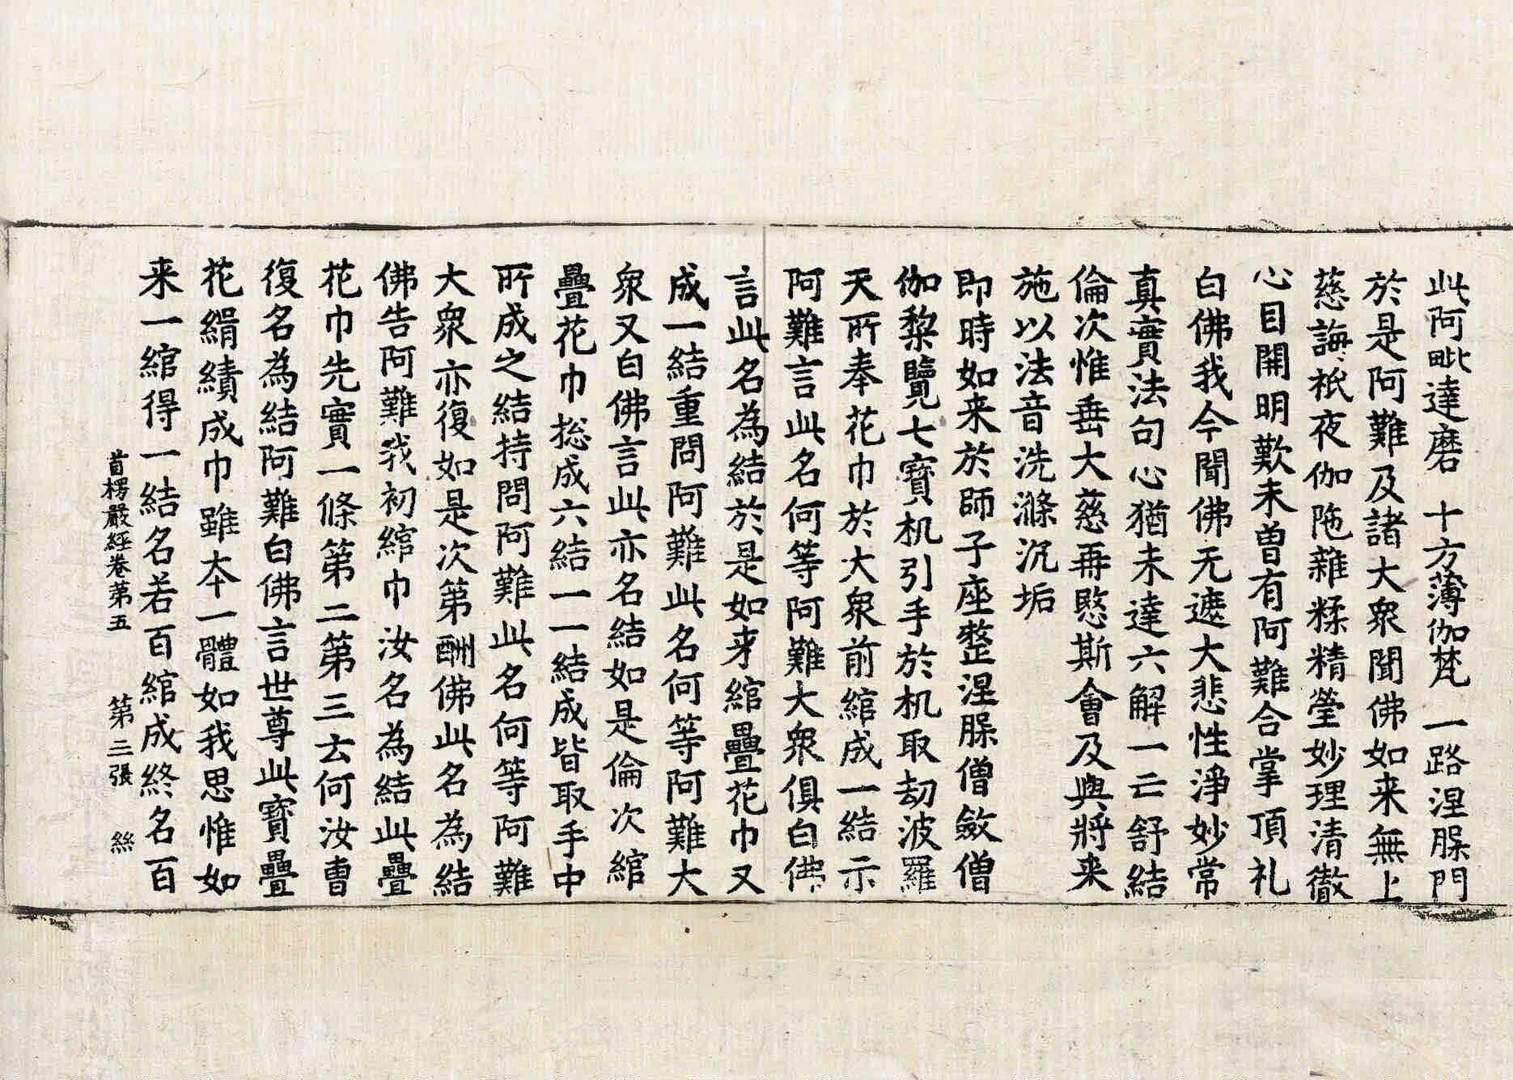 此阿毗達磨　十方薄伽梵　一路涅槃門
於是阿難及諸大衆聞佛如来無上
慈誨祇夜伽陁雜糅精瑩妙理清徹
心目開明歎未曾有阿難合掌頂礼
白佛我今聞佛无遮大悲性淨妙常
真實法句心猶未達六解一亡舒結
倫次惟垂大慈再愍斯會及與將来
施以法音洗滌沉垢
即時如来於師子座整涅槃僧斂僧
伽梨覽七寶机引手於机取劫波羅
天所奉花巾於大衆前綰成一結示
阿難言此名何等阿難大衆俱白佛
言此名為結於是如来綰疊花巾又
成一結重問阿難此名何等阿難大
衆又白佛言此亦名結如是倫次綰
疊花巾揔成六結一一結成皆取手中
所成之結持問阿難此名何等阿難
大衆亦復如是次第酬佛此名為結
佛告阿難我初綰巾汝名為結此疊
花巾先實一條第二第三云何汝曹
復名為結阿難白佛言世尊此寶疊
花緝績成巾雖本一體如我思惟如
来一綰得一結名若百綰成終名百
首楞嚴經卷第五　第二張　絲